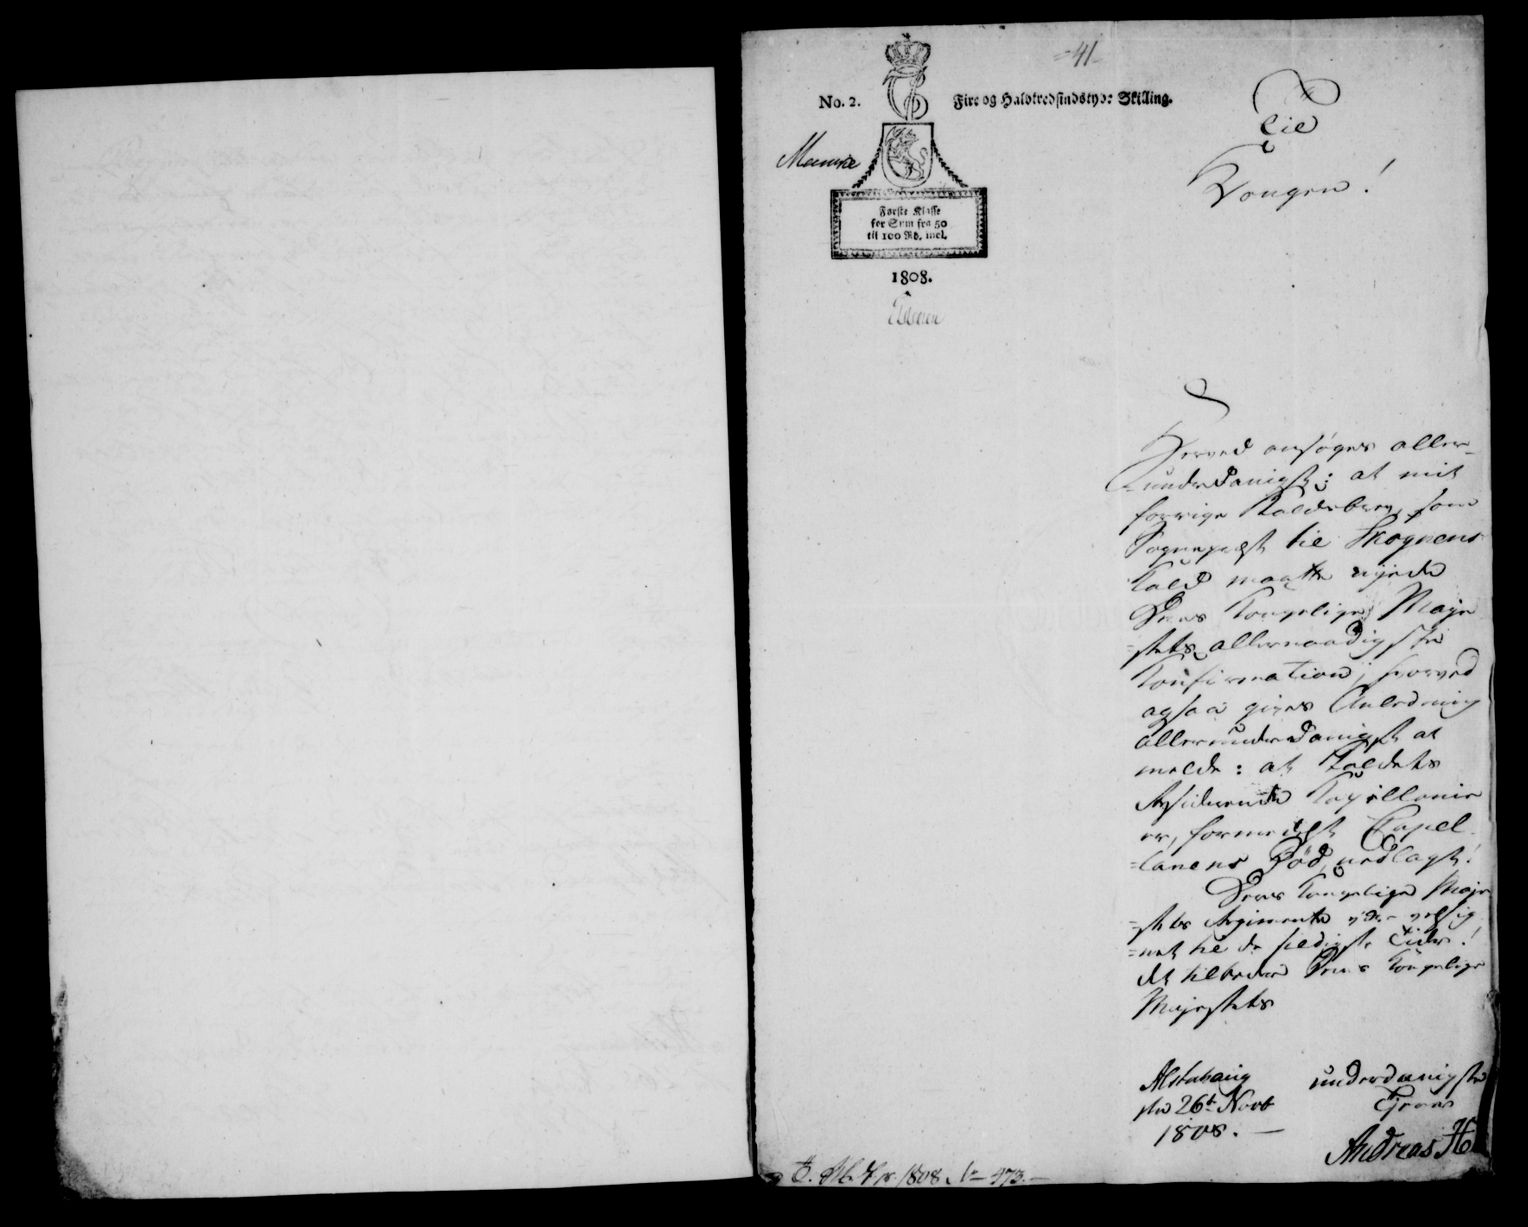 =41=
No. 2.
Fire og Halvtredsindstyve Skilling.
Første Klasse
for Sum fra 50
til 100 Rd. incl.
1808.
Til
Kongen!
Herved ansøges aller-
=underdanigst: at mit
forrige Kaldsbrev, som
Sognepræst til Skognens
Kald maatte nyde
Deres Kongelige Maje
=stets allernaadigste
Confirmation; hvorved
ogsaa gives Anledning
allerunderdanigst at
melde: at Kaldets
Residerende Capellanie
er, formedelst Capel-
=lanens Død, nedlagt!
Deres Kongelige Maje
=stets Regimente være velsig
=net til de sildigste Tider!
det tilbeder Deres Kongelige
Majestets
Alstahaug
den 26de Novb
1808. —
underdanigste
Tjener
Andreas H
1808 No 973. —